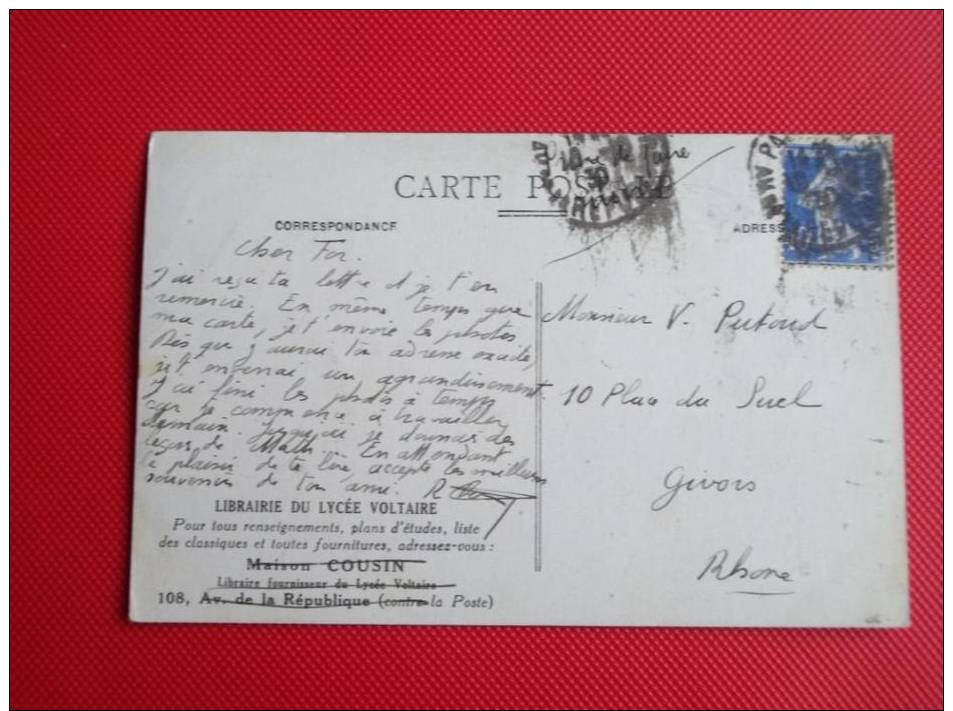 CARTE POSTALE
CORRESPONDANCE
ADRESSE
Cher
J'ai reçu ta lettre et je t'en
remercie. En même temps que
ma carte, je t'envoie les photos
Dès que j'aurai ton adresse exacte,
je t'enverrai un agrandissement
J'ai fini les photos à temps
car je commence à travailler
demain. je donnais des
leçons de Math... En attendant
le plaisir de te lire, accepte les meilleurs
souvenirs de ton ami. R
LIBRAIRIE DU LYCÉE VOLTAIRE
Pour tous renseignements, plans d'études, liste
des classiques et toutes fournitures, adressez-vous :
Maison COUSIN
Libraire fournisseur du Lycée Voltaire
108, Av. de la République (contre la Poste)
Monsieur V. Putoud
10 Place du Suel
Givors
Rhone